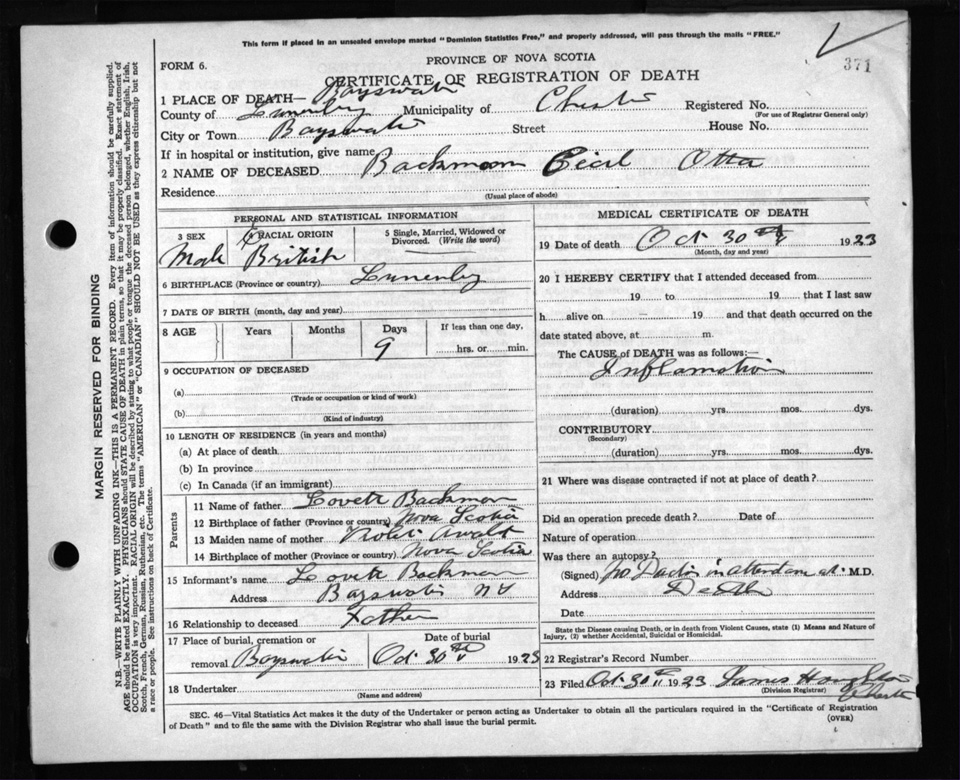 This form if placed in an unsealed envelope marked "Dominion Statistics Free," and properly addressed, will pass through the mails "FREE."
FORM 6.
PROVINCE OF NOVA SCOTIA
371
CERTIFICATE OF REGISTRATION OF DEATH
1 PLACE OF DEATH— Bayswater
County of Lunenburg Municipality of Chester Registered No.
(For use of Registrar General only)
City or Town Bayswater Street House No.
If in hospital or institution, give name
2 NAME OF DECEASED Backman Cecil Otto
Residence
(Usual place of abode)
PERSONAL AND STATISTICAL INFORMATION
3 SEX 4 RACIAL ORIGIN 5 Single, Married, Widowed or Divorced. (Write the word)
Male British
6 BIRTHPLACE (Province or country) Lunenburg
7 DATE OF BIRTH (month, day and year)
8 AGE Years Months Days If less than one day,
9 hrs. or min.
9 OCCUPATION OF DECEASED
(a)
(Trade or occupation or kind of work)
(b)
(Kind of industry)
10 LENGTH OF RESIDENCE (in years and months)
(a) At place of death
(b) In province
(c) In Canada (if an immigrant)
Parents
11 Name of father Lovett Backman
12 Birthplace of father (Province or country) Nova Scotia
13 Maiden name of mother Violet
14 Birthplace of mother (Province or country) Nova Scotia
15 Informant's name Lovett Backman
Address Bayswater NS
16 Relationship to deceased Father
17 Place of burial, cremation or Date of burial
removal Bayswater Oct 30th 1923
18 Undertaker
(Name and address)
MEDICAL CERTIFICATE OF DEATH
19 Date of death Oct 30th 1923
(Month, day and year)
20 I HEREBY CERTIFY that I attended deceased from
19 to 19 that I last saw
h alive on 19 and that death occurred on the
date stated above, at m.
The CAUSE of DEATH was as follows:—
Inflamation
(duration) yrs. mos. dys.
CONTRIBUTORY
(Secondary)
(duration) yrs. mos. dys.
21 Where was disease contracted if not at place of death?
Did an operation precede death? Date of
Nature of operation
Was there an autopsy?
(Signed) no Doctor in attendance at M.D.
Address Death
Date
State the Disease causing Death, or in death from Violent Causes, state (1) Means and Nature of
Injury, (2) whether Accidental, Suicidal or Homicidal.
22 Registrar's Record Number
23 Filed Oct 30th 1923 James
(Division Registrar)
SEC. 46—Vital Statistics Act makes it the duty of the Undertaker or person acting as Undertaker to obtain all the particulars required in the "Certificate of Registration
of Death" and to file the same with the Division Registrar who shall issue the burial permit.
(OVER)
MARGIN RESERVED FOR BINDING
N.B.—WRITE PLAINLY WITH UNFADING INK—THIS IS A PERMANENT RECORD. Every item of information should be carefully supplied.
AGE should be stated EXACTLY. PHYSICIANS should STATE CAUSE OF DEATH in plain terms, so that it may be properly classified. Exact statement of
OCCUPATION is very important. RACIAL ORIGIN will be described by stating to what people or tongue the deceased person belonged, whether English, Irish,
Scotch, French, German, Russian, Ruthenian, etc. The terms "AMERICAN" or "CANADIAN" SHOULD NOT BE USED as they express citizenship but not
a race or people. See instructions on back of Certificate.